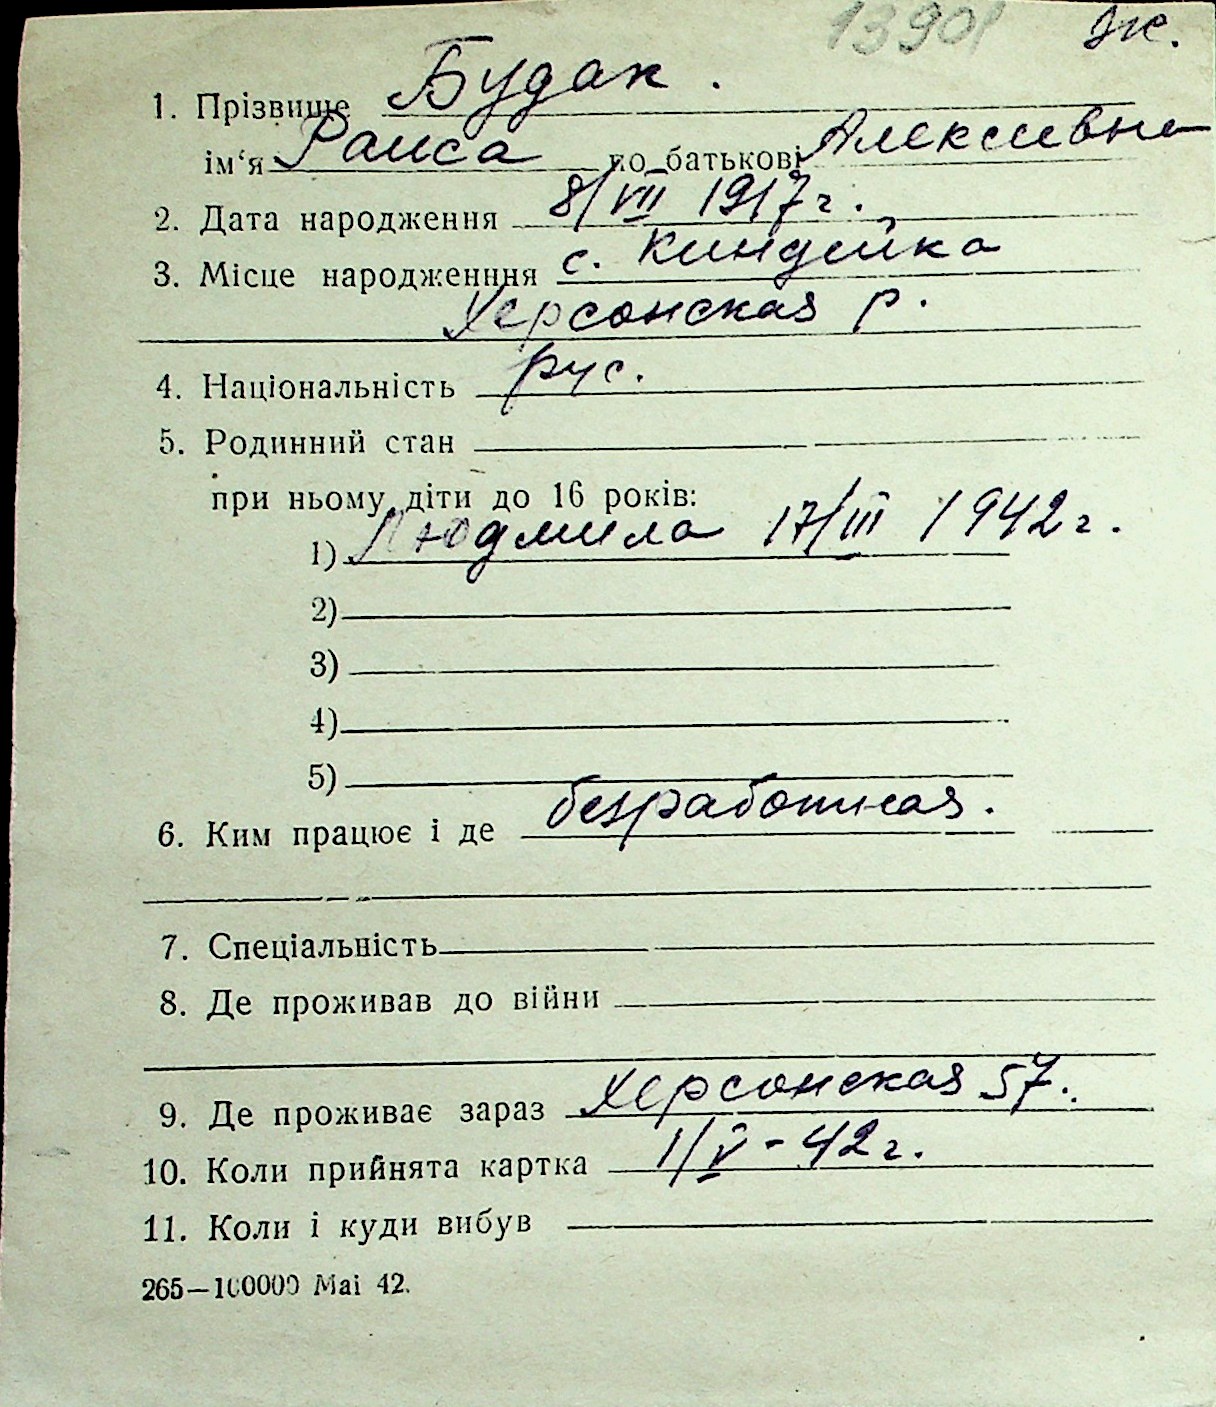 13901 Ж.
1. Прізвище Будак.
ім‘я Раиса по батькові Алексеевна
2. Дата народження 8/VII 1917 г.
3. Місце народженння с. Киндейка
Херсонская р.
4. Національність рус.
5. Родинний стан
при ньому діти до 16 років:
1) Людмила 17/III 1942 г.
2)
3)
4)
5)
6. Ким працює і де безработная.
7. Спеціальність
8. Де проживав до війни
9. Де проживає зараз Херсонская 57.
10. Коли прийнята картка 1/V - 42 г.
11. Коли і куди вибув
265—100000 Mai 42.